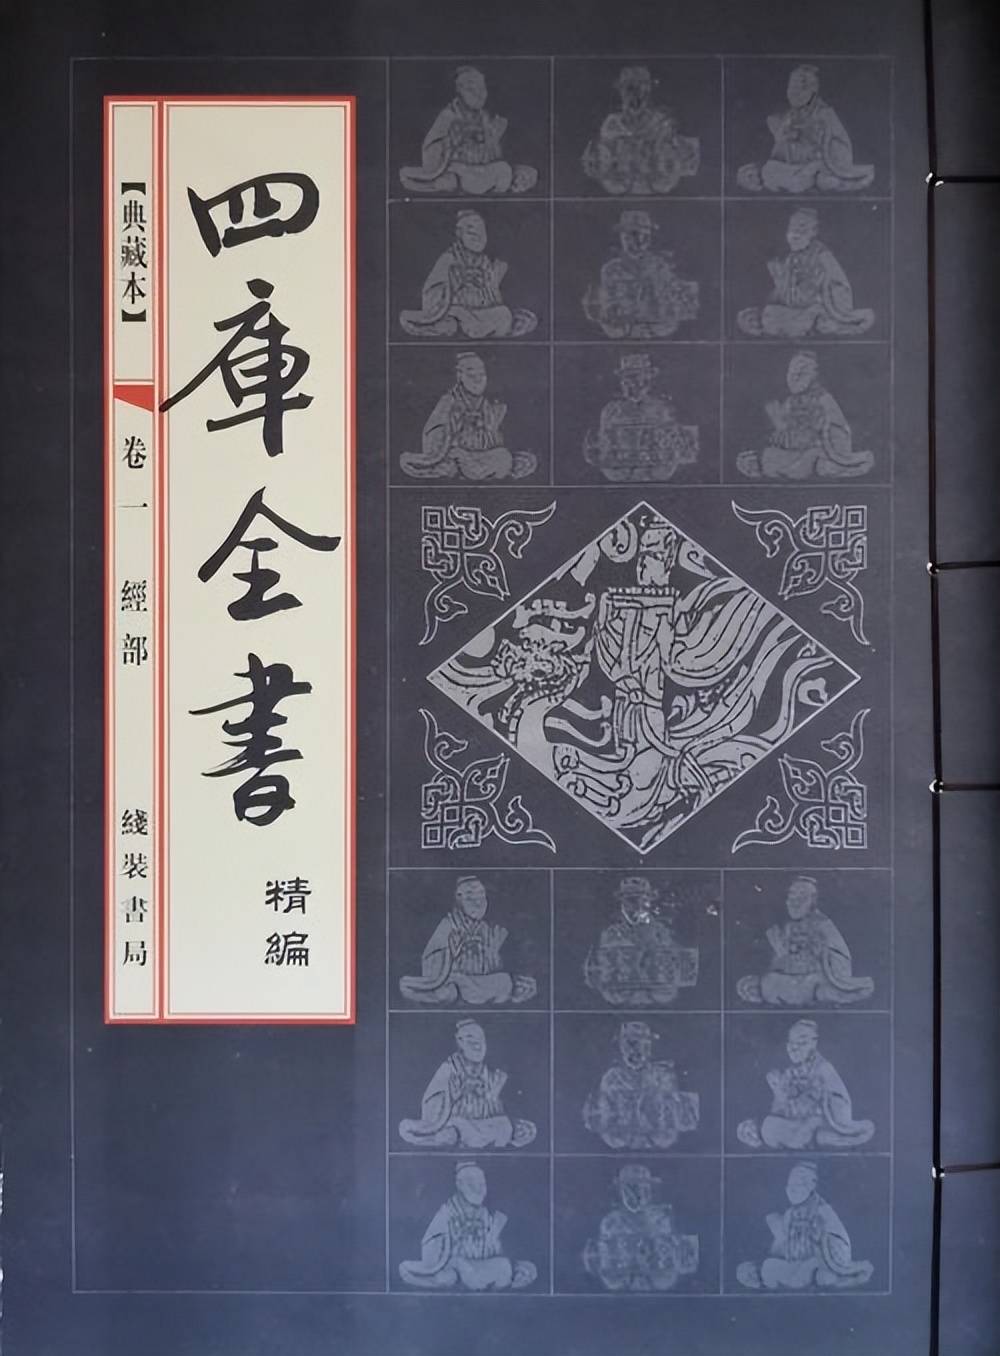 四庫全書
精編
【典藏本】
卷一 經部
綫裝書局